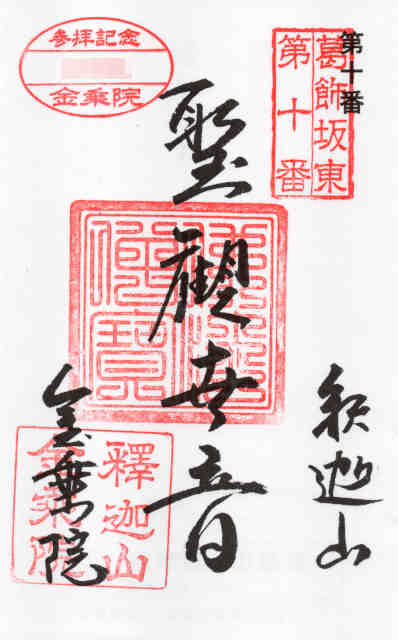 第十番
葛飾坂東
第十番
参拝記念
金乗院
聖観世音
佛法僧寶
釈迦山
釋迦山
金乗院
金乗院